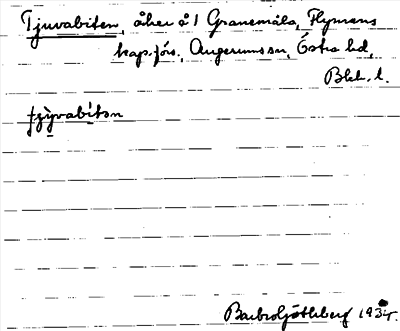 Tjuvabiten, åker å 1 Granemåla, Flymens
kap.förs., Augerums sn, Östra hd,
Blek. l.
Barbro Götlsberg 1934.